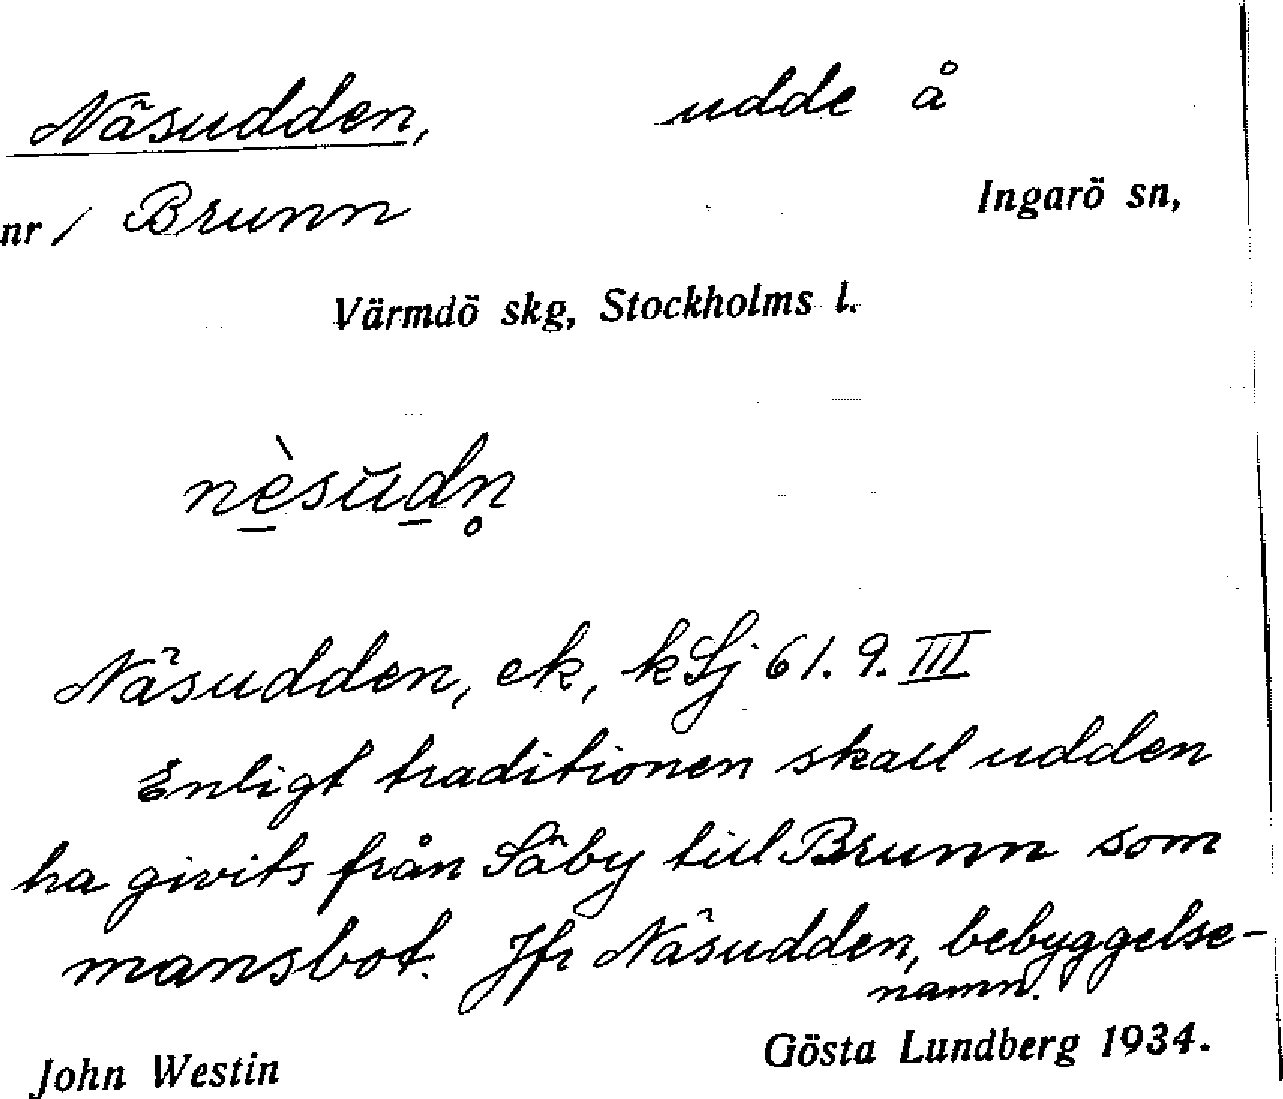 Näsudden, udde å
nr 1 Brunn Ingarö sn,
Värmdö skg, Stockholms l.
nè̱sŭḏn̥
Näsudden, ek, k Sj 61. 9. III
Enligt traditionen skall udden
ha givits från Säby till Brunn som
mansbot. Jfr Näsudden, bebyggelse-
namn.
John Westin Gösta Lundberg 1934.